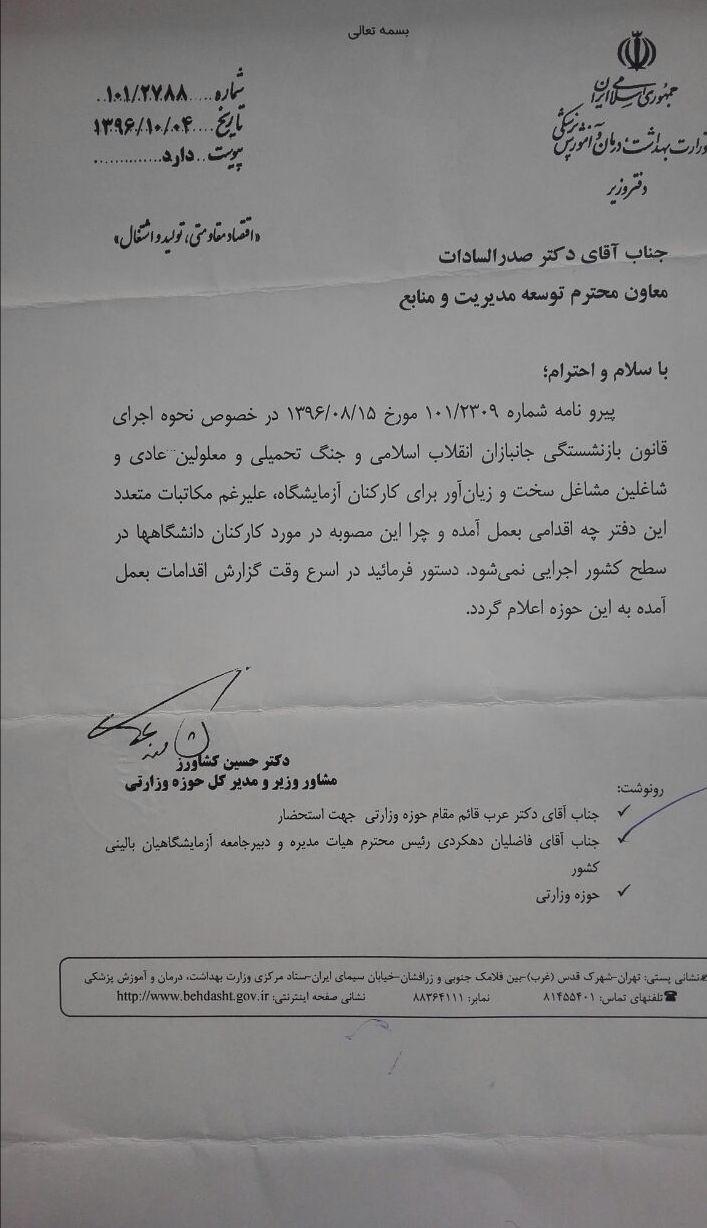 بسمه تعالی
جمهوری اسلامی ایران
وزارت بهداشت، درمان و آموزش پزشکی
دفتر وزیر
شماره.....۱۰۱/۲۷۸۸..
تاریخ....۱۳۹۶/۱۰/۰۴
پیوست..دارد.............
«اقتصاد مقاومتی، تولید و اشتغال»
جناب آقای دکتر صدرالسادات
معاون محترم توسعه مدیریت و منابع
با سلام و احترام؛
پیرو نامه شماره ۱۰۱/۲۳۰۹ مورخ ۱۳۹۶/۰۸/۱۵ در خصوص نحوه اجرای
قانون بازنشستگی جانبازان انقلاب اسلامی و جنگ تحمیلی و معلولین عادی و
شاغلین مشاغل سخت و زیان‌آور برای کارکنان آزمایشگاه، علیرغم مکاتبات متعدد
این دفتر چه اقدامی بعمل آمده و چرا این مصوبه در مورد کارکنان دانشگاهها در
سطح کشور اجرایی نمی‌شود. دستور فرمائید در اسرع وقت گزارش اقدامات بعمل
آمده به این حوزه اعلام گردد.
دکتر حسین کشاورز
مشاور وزیر و مدیر کل حوزه وزارتی
رونوشت:
✓ جناب آقای دکتر عرب قائم مقام حوزه وزارتی جهت استحضار
✓ جناب آقای فاضلیان دهکردی رئیس محترم هیات مدیره و دبیرجامعه آزمایشگاهیان بالینی
کشور
✓ حوزه وزارتی
نشانی پستی: تهران-شهرک قدس (غرب)-بین فلامک جنوبی و زرافشان-خیابان سیمای ایران-ستاد مرکزی وزارت بهداشت، درمان و آموزش پزشکی
تلفنهای تماس: ۸۱۴۵۵۴۰۱ نمابر: ۸۸۳۶۴۱۱۱ نشانی صفحه اینترنتی: http://www.behdasht.gov.ir